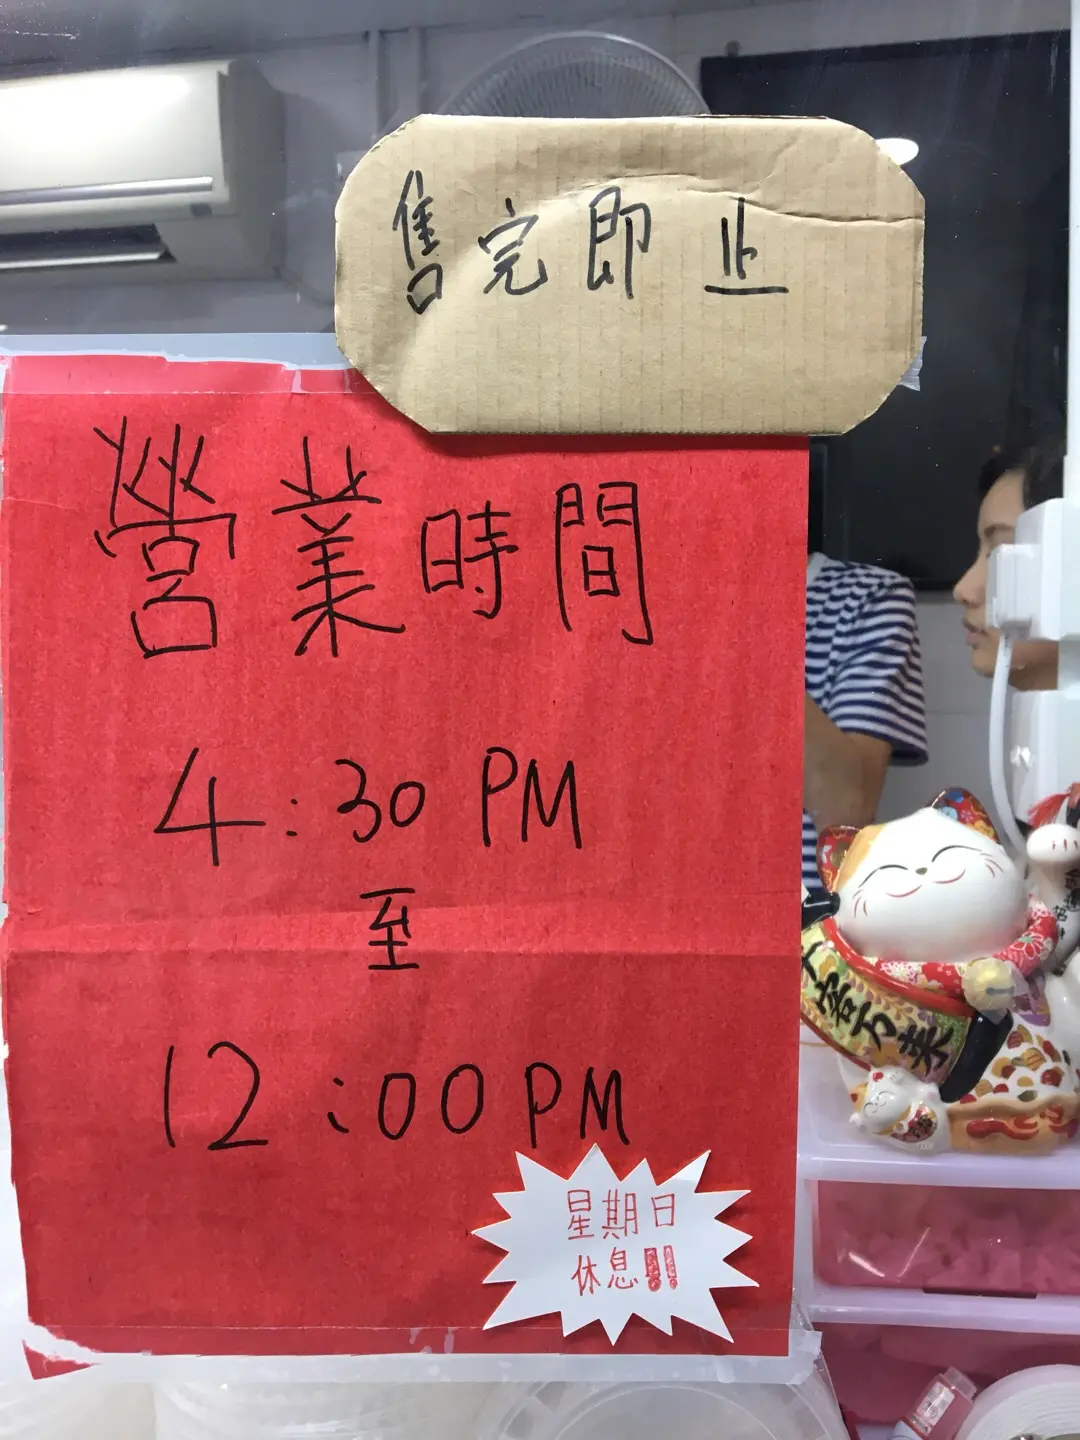 售完即止
營業時間
4:30 PM
至
12:00PM
星期日
休息!!
客万来